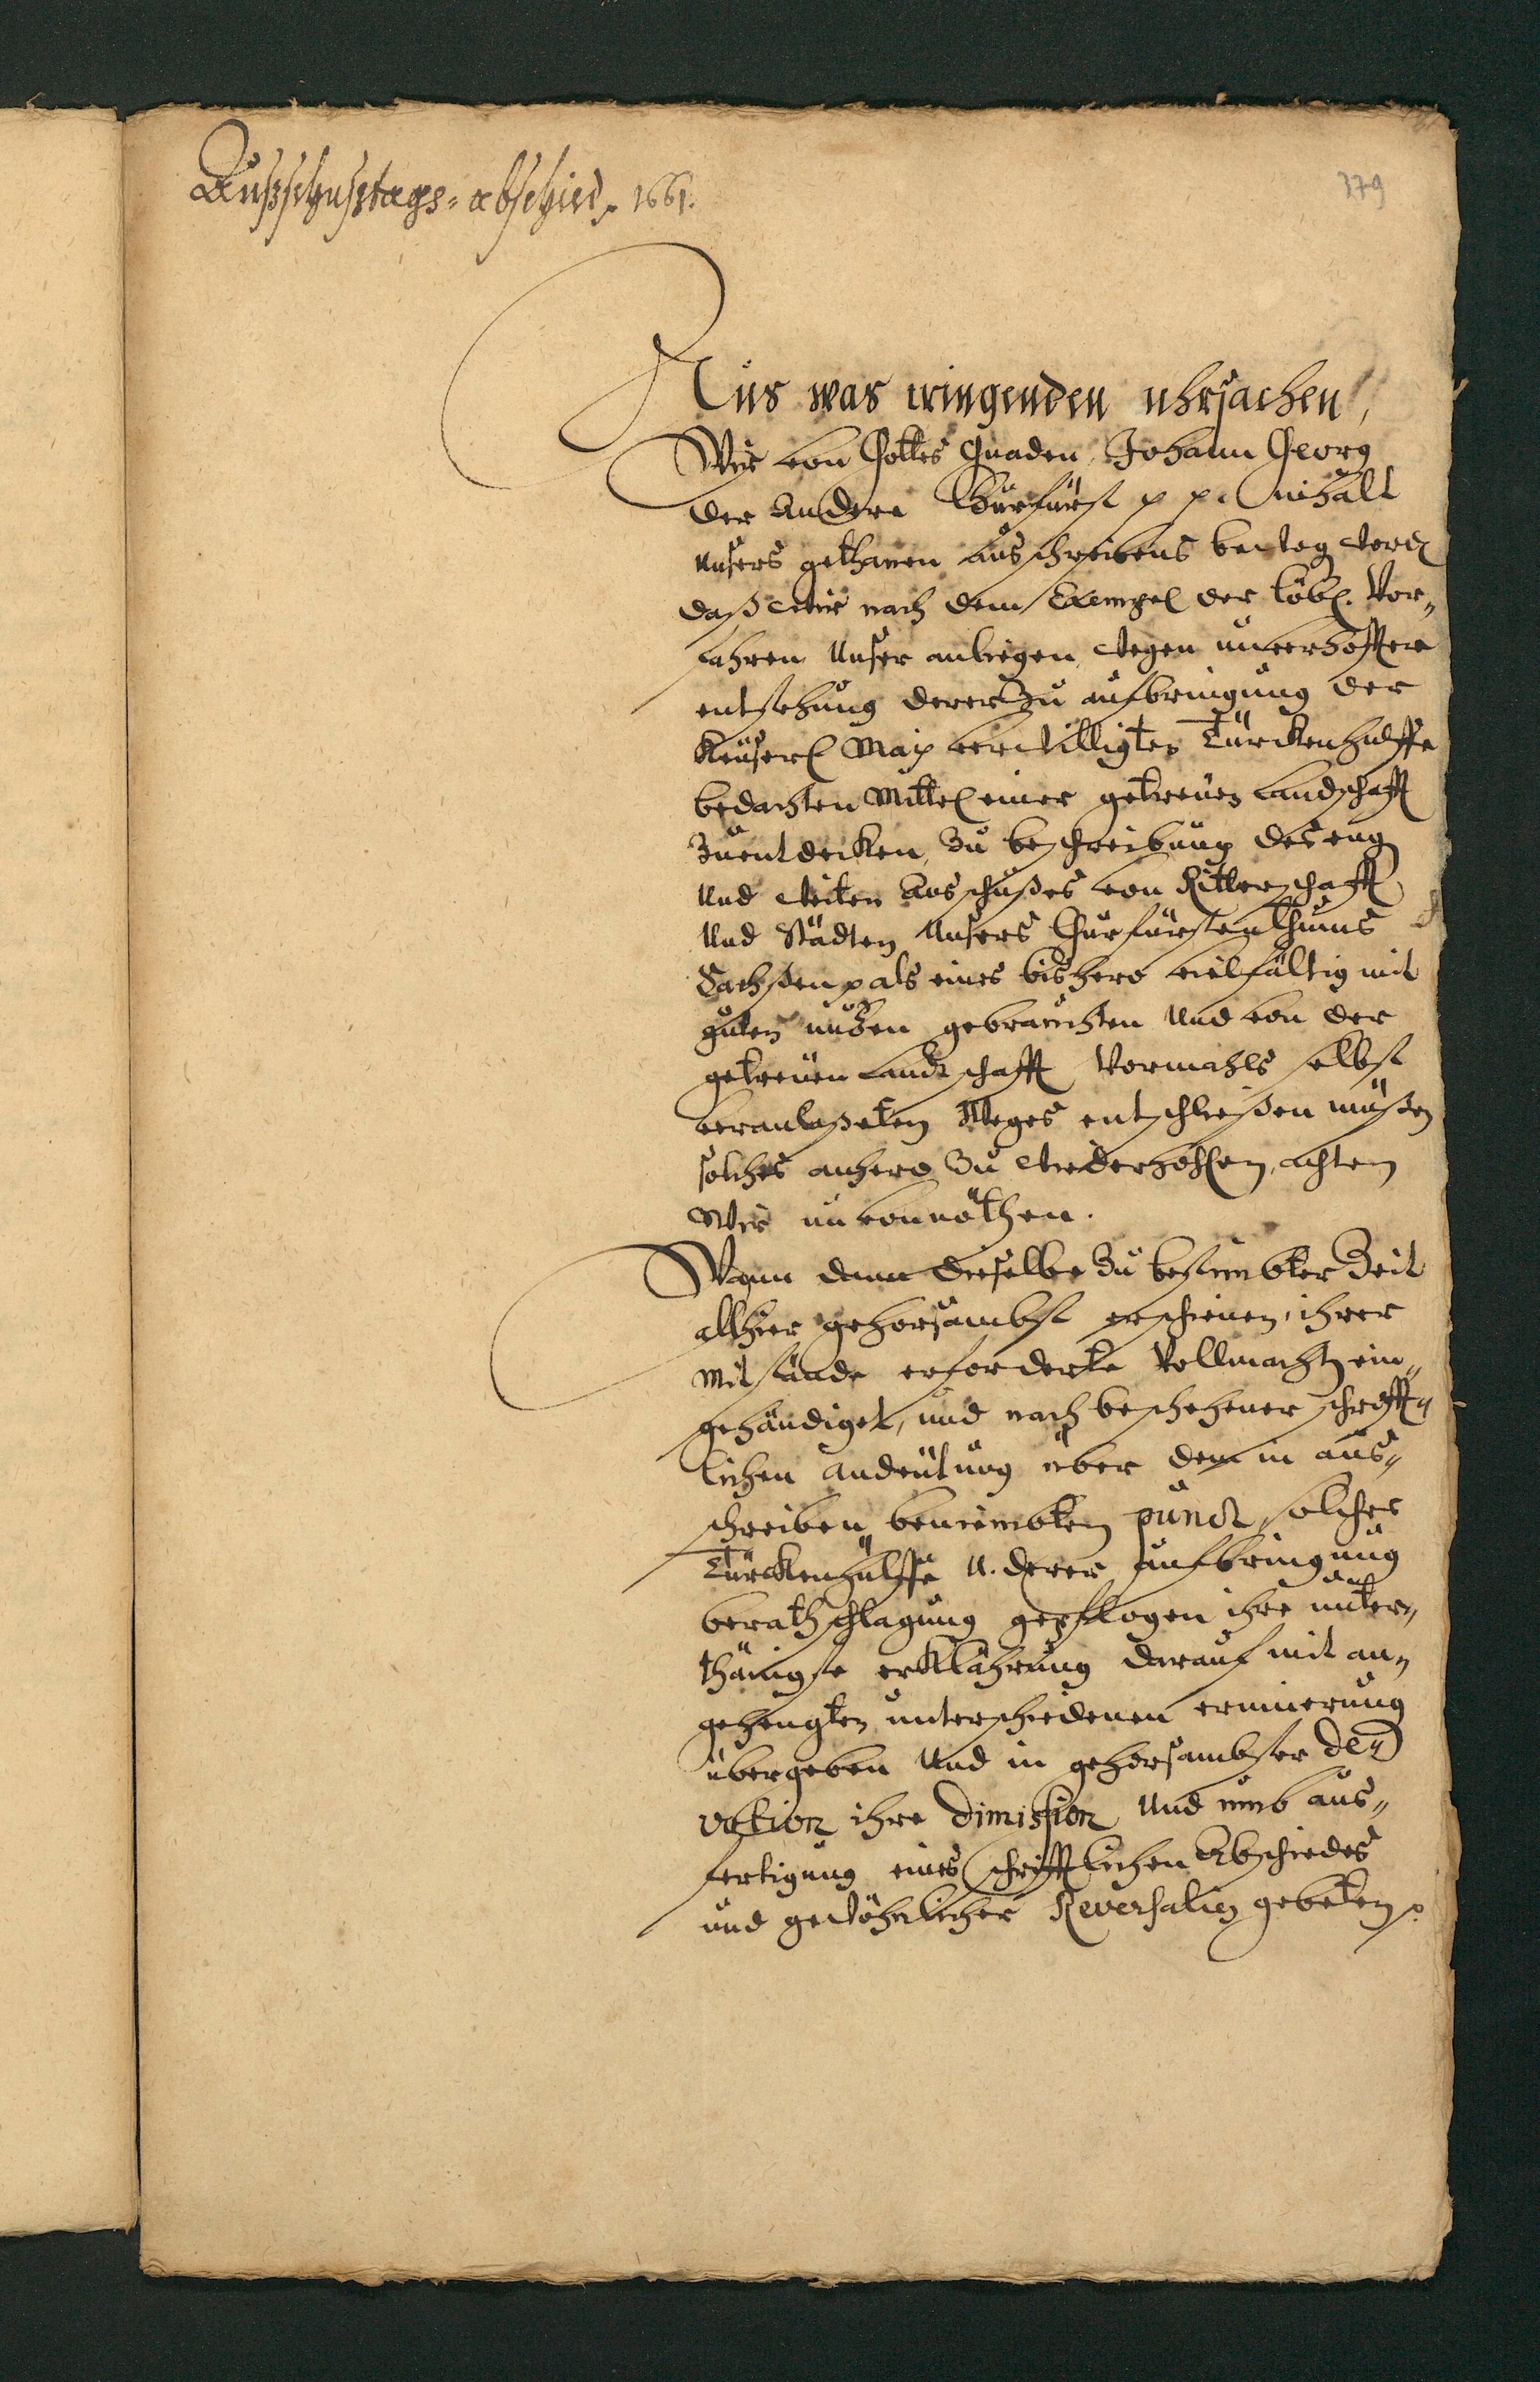 Außschußtags-abschied, 1661.
379
Aus was tringenden uhrsachen,
Wir von Gottes Gnaden, Johann Georg
der Andere Churfürst p p. Inhalt
unsers gethanen ausschreibens bewogen word
daß wir nach dem Exempel der löbl. Vor„
fahren unser anliegen wegen unverhoffter
entstehung derer zu aufbringung der
Keyserl Maj verwilligter Türckenhülffe
bedachten Mittel einer getreuen Landschafft
zuentdecken, zu beschreibung des eng
und weiten Ausschußes von Ritterschafft
und Städten unsers Churfürstenthums
Sachßen p als eines bishero vielfältig mit
guten nuzen gebrauchten und von der
getreuen Landschafft Vormahls selbst
veranlaßeten Weges entschließen müßen
solches anhero zu wiederholen, achten
wir unvonnöthen.
Wann dann dieselbe zu bestimbter Zeit
allhier gehorsambst erschienen, ihrer
Mitstände erforderte Vollmacht ein„
gehändiget, und nach beschehener schrifft„
lichen andeutung über dem in aus„
schreiben benimbten punct, solcher
Türckenhülffe u. derer aufbringung
berathschlagung gepflogen ihre unter„
thänigste erklährung darauf mit an„
gehengten unterschiedenen erinnerung
übergeben und in gehorsambster de„
votion ihre dimission und umb aus„
fertigung eines schrifftlichen Abschiedes
und gewöhnlicher Reversalien gebeten p